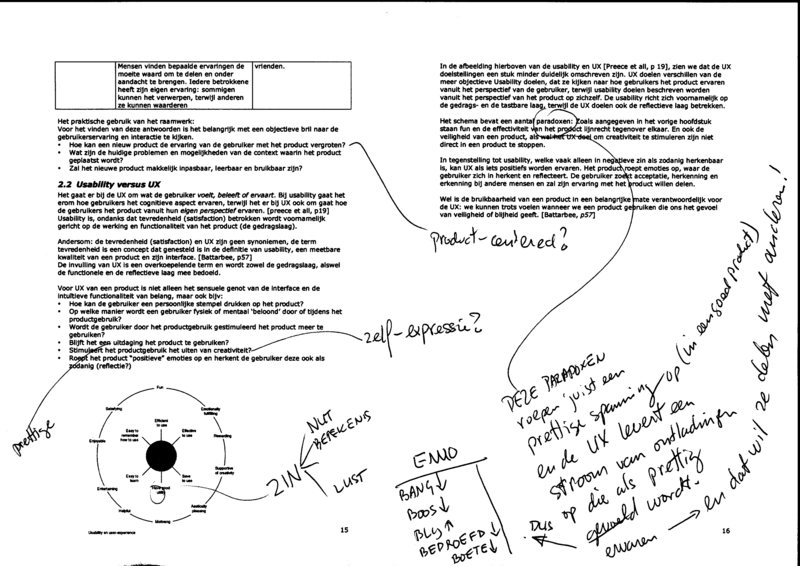 Mensen vinden bepaalde ervaringen de
moeite waard om te delen en onder
aandacht te brengen. Iedere betrokkene
heeft zijn eigen ervaring: sommigen
kunnen het verwerpen, terwijl anderen
ze kunnen waarderen
vrienden.
Het praktische gebruik van het raamwerk:
Voor het vinden van deze antwoorden is het belangrijk met een objectieve bril naar de
gebruikerservaring en interactie te kijken.
• Hoe kan een nieuw product de ervaring van de gebruiker met het product vergroten?
• Wat zijn de huidige problemen en mogelijkheden van de context waarin het product
geplaatst wordt?
• Zal het nieuwe product makkelijk inpasbaar, leerbaar en bruikbaar zijn?
2.2 Usability versus UX
Het gaat er bij de UX om wat de gebruiker voelt, beleeft of ervaart. Bij usability gaat het
erom hoe gebruikers het cognitieve aspect ervaren, terwijl het er bij UX ook om gaat hoe
de gebruikers het product vanuit hun eigen perspectief ervaren. [preece et all, p19]
Usability is, ondanks dat tevredenheid (satisfaction) betrokken wordt voornamelijk
gericht op de werking en functionaliteit van het product (de gedragslaag).
Andersom: de tevredenheid (satisfaction) en UX zijn geen synoniemen, de term
tevredenheid is een concept dat genesteld is in de definitie van usability, een meetbare
kwaliteit van een product en zijn interface. [Battarbee, p57]
De invulling van UX is een overkoepelende term en wordt zowel de gedragslaag, alswel
de functionele en de reflectieve laag mee bedoeld.
Voor UX van een product is niet alleen het sensuele genot van de interface en de
intuïtieve functionaliteit van belang, maar ook bijv:
• Hoe kan de gebruiker een persoonlijke stempel drukken op het product?
• Op welke manier wordt een gebruiker fysiek of mentaal 'beloond' door of tijdens het
productgebruik?
• Wordt de gebruiker door het productgebruik gestimuleerd het product meer te
gebruiken?
• Blijft het een uitdaging het product te gebruiken?
• Stimuleert het productgebruik het uiten van creativiteit?
• Roept het product "positieve" emoties op en herkent de gebruiker deze ook als
zodanig (reflectie?)
prettige
product-centered?
zelf-expressie?
Fun
Satisfying
Emotionally
fulfilling
Efficient
to use
Easy to
remember
how to use
Effective
to use
Enjoyable
Rewarding
Easy to
learn
Safe to
use
Supportive
of creativity
Have good
utility
Entertaining
Helpful
Aestically
pleasing
Motivating
ZIN
NUT
BETEKENIS
LUST
Usability en user-experience
15
In de afbeelding hierboven van de usability en UX [Preece et all, p 19], zien we dat de UX
doelstellingen een stuk minder duidelijk omschreven zijn. UX doelen verschillen van de
meer objectieve Usability doelen, dat ze kijken naar hoe gebruikers het product ervaren
vanuit het perspectief van de gebruiker, terwijl usability doelen beschreven worden
vanuit het perspectief van het product op zichzelf. De usability richt zich voornamelijk op
de gedrags- en de tastbare laag, terwijl de UX doelen ook de reflectieve laag betrekken.
Het schema bevat een aantal paradoxen: Zoals aangegeven in het vorige hoofdstuk
staan fun en de effectiviteit van het product lijnrecht tegenover elkaar. En ook de
veiligheid van een product, als wel het UX doel om creativiteit te stimuleren zijn niet
direct in een product te stoppen.
In tegenstelling tot usability, welke vaak alleen in negatieve zin als zodanig herkenbaar
is, kan UX als iets positiefs worden ervaren. Het product roept emoties op, waar de
gebruiker zich in herkent en reflecteert. De gebruiker zoekt acceptatie, herkenning en
erkenning bij andere mensen en zal zijn ervaring met het product willen delen.
Wel is de bruikbaarheid van een product in een belangrijke mate verantwoordelijk voor
de UX: we kunnen trots voelen wanneer we een product gebruiken die ons het gevoel
van veiligheid of blijheid geeft. [Battarbee, p57]
DEZE PARADOXEN
roepen juist een
prettige spanning op (in een goed product)
en de UX levert een
stroom van ontladingen
op die als prettig
gevoeld wordt.
ervaren → en dat wil ze delen met anderen!
Dus
EMO
BANG↓
BOOS↓
BLIJ↑
BEDROEFD↓
BOETE↓
16